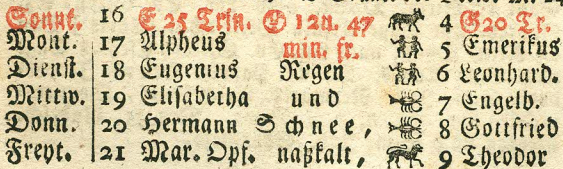 Sonnt. 16 E 25 Trin. 12 u. 47 4 G 20 Tr.
Mont. 17 Alpheus min. fr. 5 Emerikus
Dienst. 18 Eugenius Regen 6 Leonhard.
Mittw. 19 Elisabetha und 7 Engelb.
Donn. 20 Hermann Schnee, 8 Gottfried
Freyt. 21 Mar. Opf. naßkalt, 9 Theodor